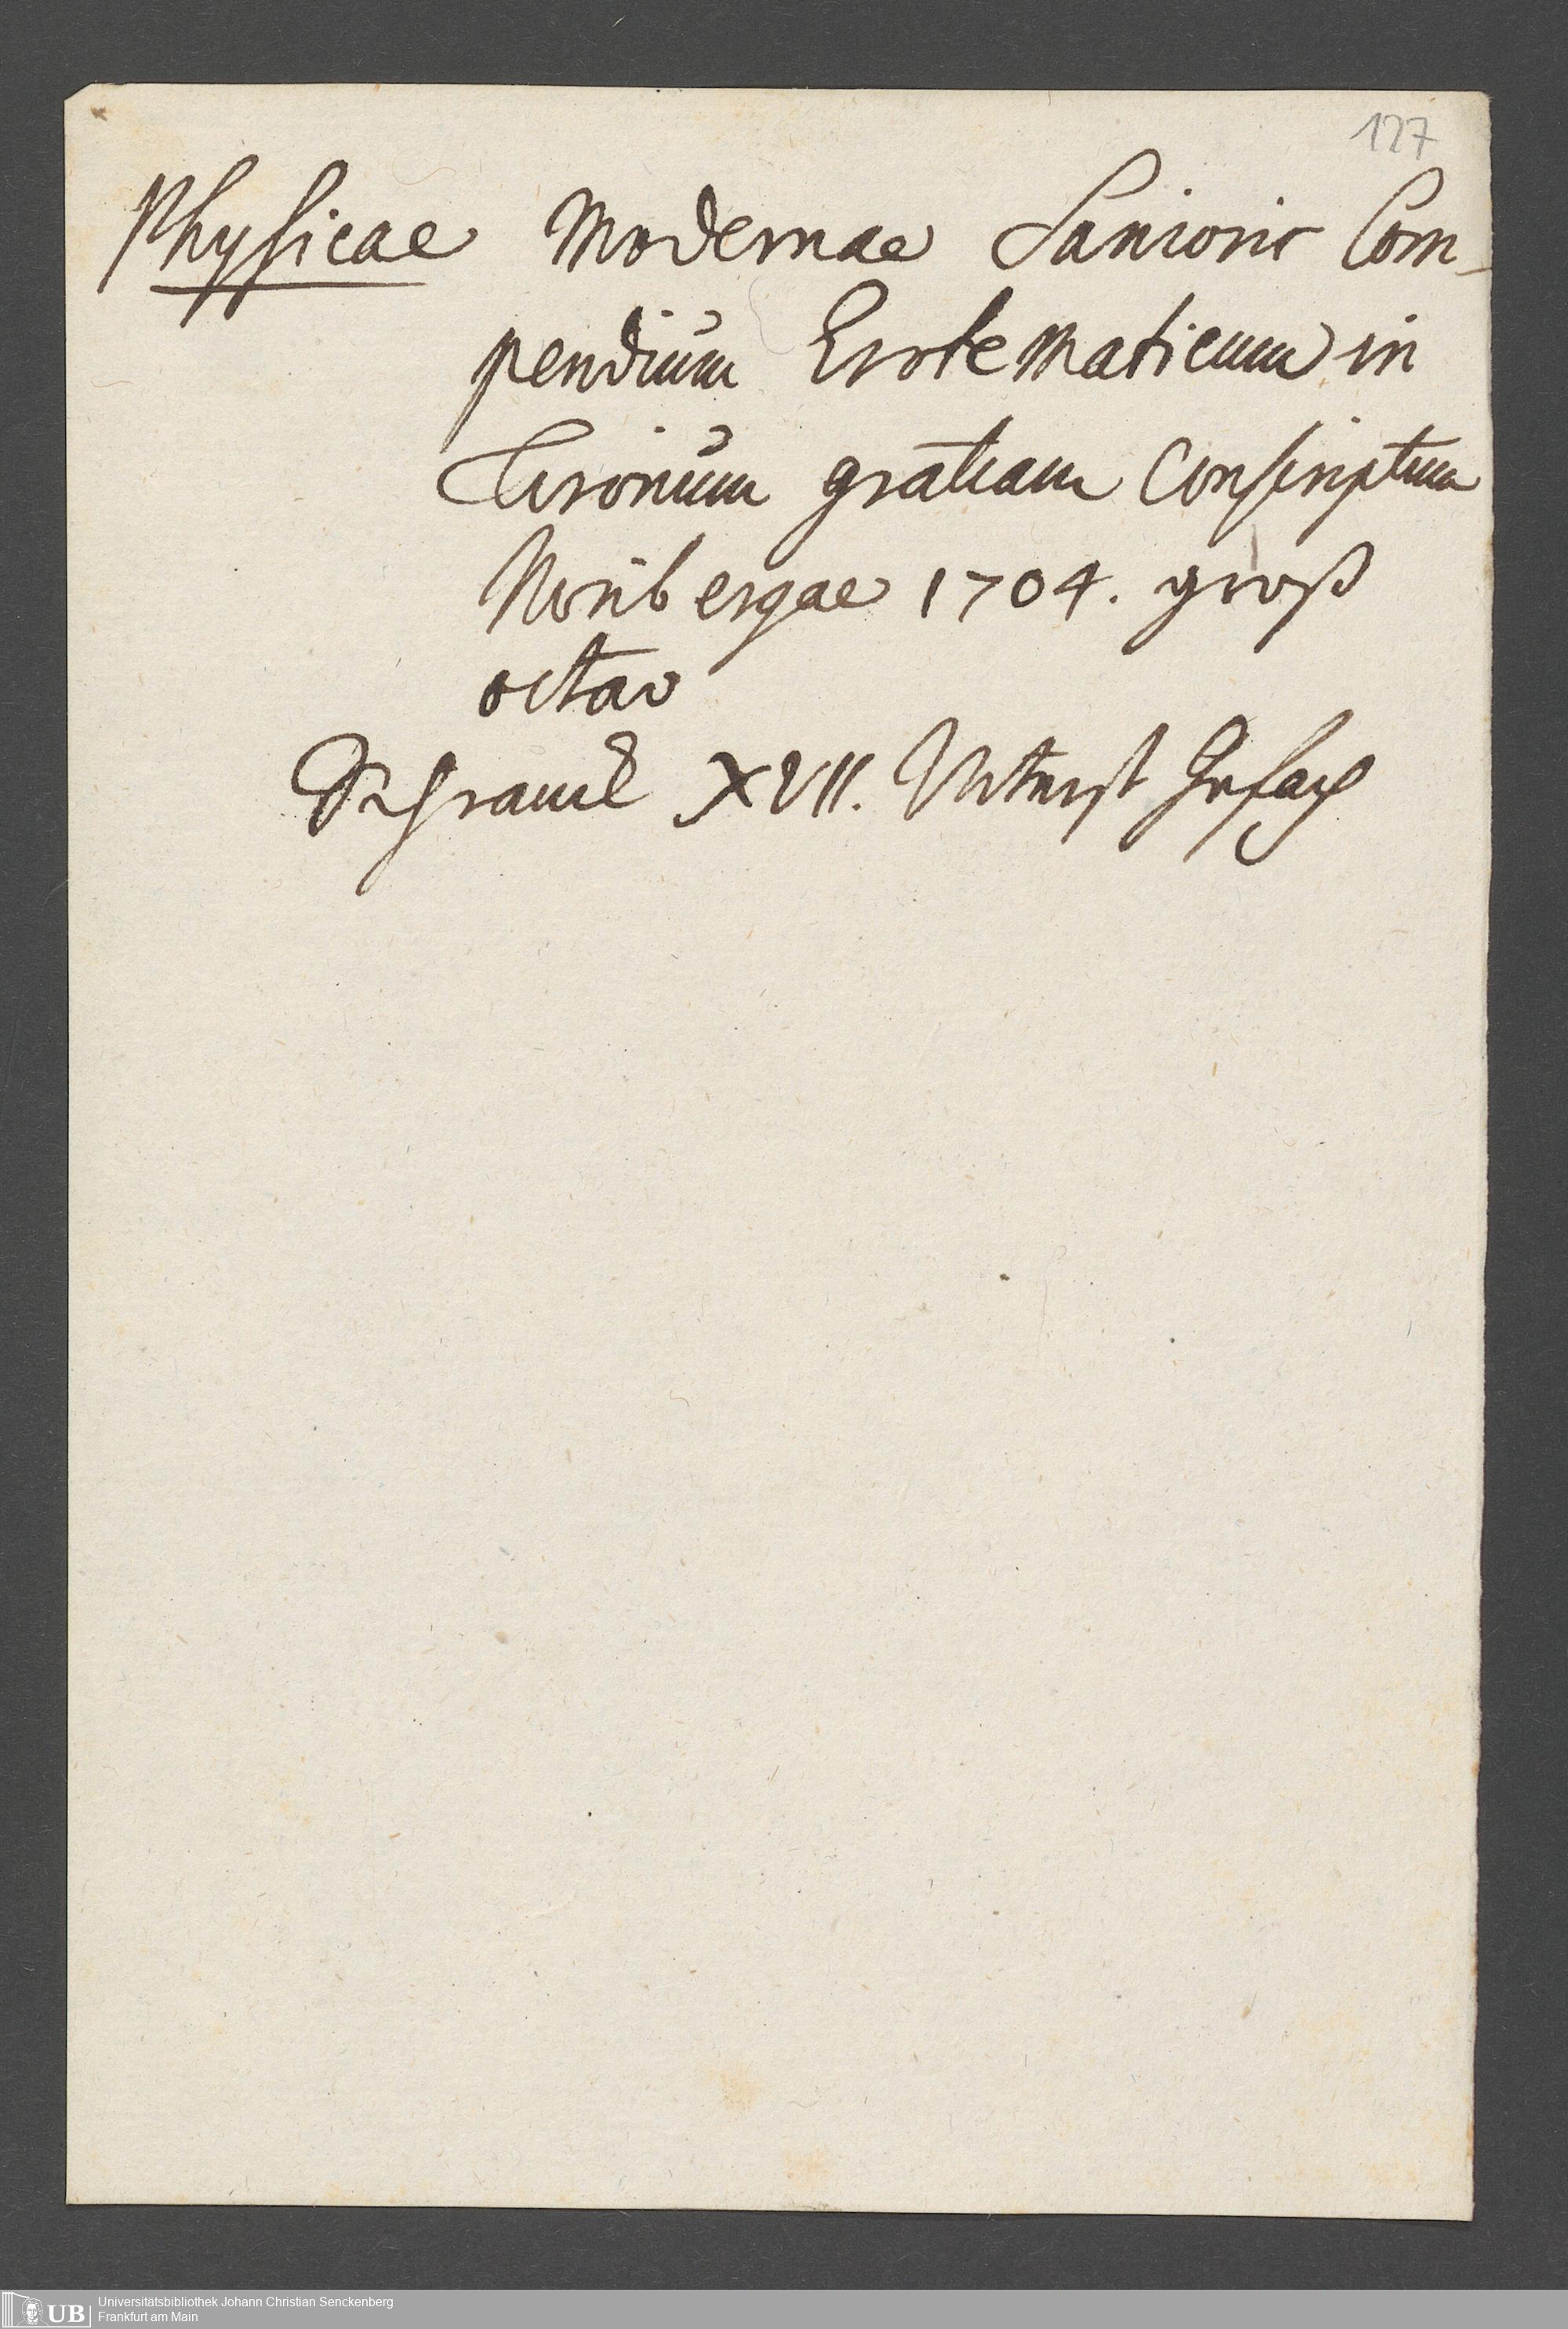 127
Physicae Modernae Sanioris Com-
pendium Erotematicum in
Tironum gratiam Conscriptum
Noribergae 1704. groß
octav
Schranck XVII. Unterst Gefach
UB Universitätsbibliothek Johann Christian Senckenberg
Frankfurt am Main